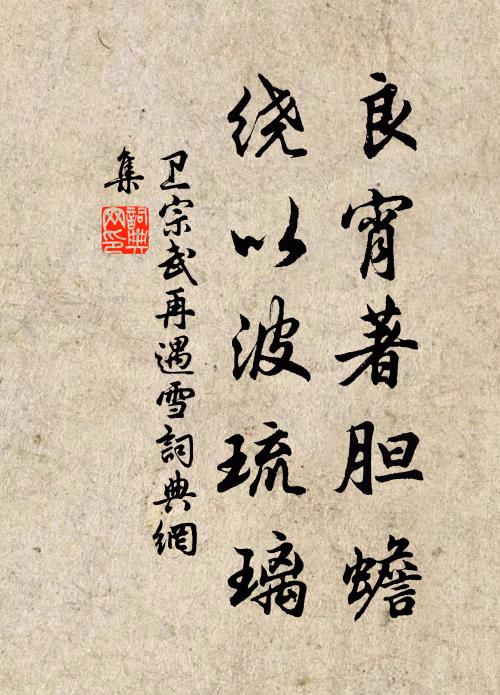 良宵著胆蟾
绕以波琉璃
卫宗武再遇雪詞典網
集
詞典网印